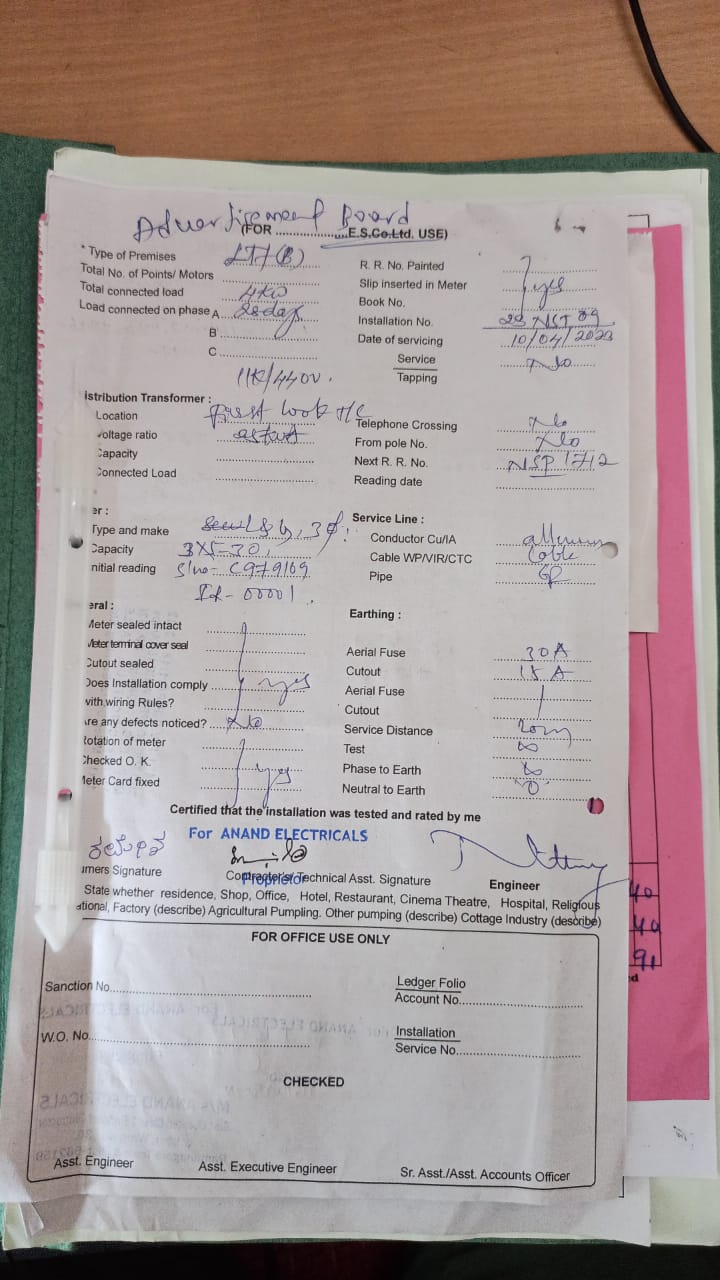 Advertisement Board
(FOR ........................E.S.Co.Ltd. USE)
* Type of Premises LT7(B)
Total No. of Points/ Motors
Total connected load 4KW
Load connected on phase A 28days
B
C
11K/440V.
R. R. No. Painted
Slip inserted in Meter yes
Book No.
Installation No.
Date of servicing 10/04/2023
Service No
Tapping
istribution Transformer :
Location First look T/C
Voltage ratio
Capacity
Connected Load
Telephone Crossing No
From pole No. No
Next R. R. No. NSP 1712
Reading date
er :
Type and make L&G, 3Ø.
Capacity 3X5-30,
nitial reading Slno- C979169
IR- 00001.
Service Line :
Conductor Cu/IA
Cable WP/VIR/CTC Cable
Pipe GI
eral :
Meter sealed intact
Meter terminal cover seal
Cutout sealed
Does Installation comply yes
with wiring Rules?
Are any defects noticed? No
Rotation of meter
Checked O. K. yes
Meter Card fixed
Earthing :
Aerial Fuse 30A
Cutout 15 A
Aerial Fuse
Cutout
Service Distance 20m
Test ∞
Phase to Earth ∞
Neutral to Earth "0"
Certified that the installation was tested and rated by me
For ANAND ELECTRICALS
umers Signature
Contractor's/Technical Asst. Signature
Proprietor
Engineer
State whether residence, Shop, Office, Hotel, Restaurant, Cinema Theatre, Hospital, Religious
ational, Factory (describe) Agricultural Pumpling. Other pumping (describe) Cottage Industry (describe)
FOR OFFICE USE ONLY
Sanction No
Ledger Folio
Account No
W.O. No
Installation
Service No
CHECKED
Asst. Engineer
Asst. Executive Engineer
Sr. Asst./Asst. Accounts Officer
40
40
91